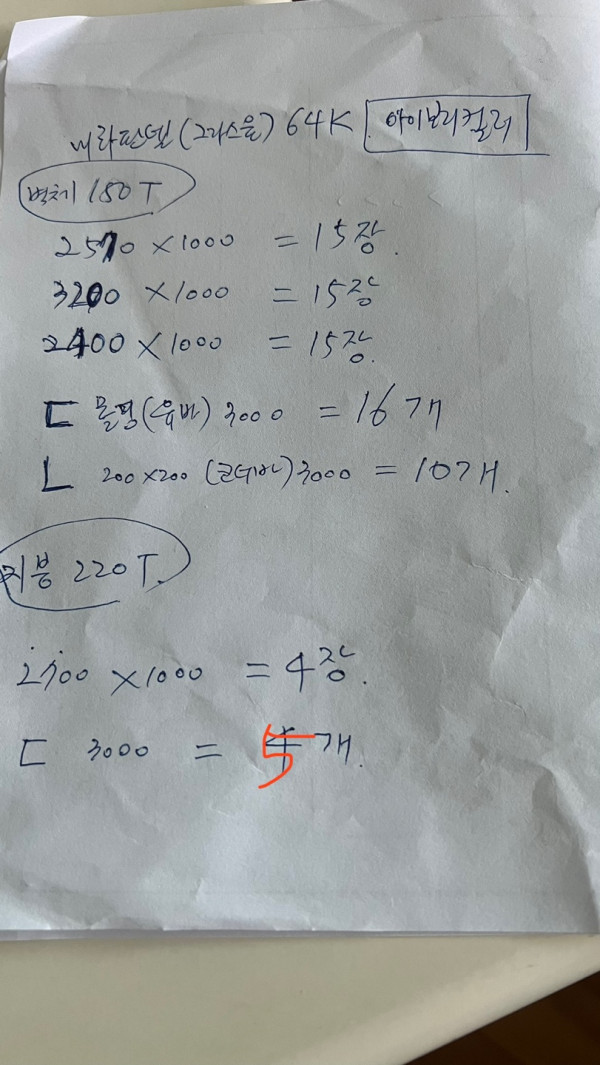 메라판넬(그라스울) 64K 아이보리컬러
벽체 150T
2570 × 1000 = 15장.
3200 × 1000 = 15장
2400 × 1000 = 15장.
ㄷ 몰딩(유바) 3000 = 16개
ㄴ 200×200 (코너바) 3000 = 10개.
지붕 220T.
2700 × 1000 = 4장.
ㄷ 3000 = 5개.